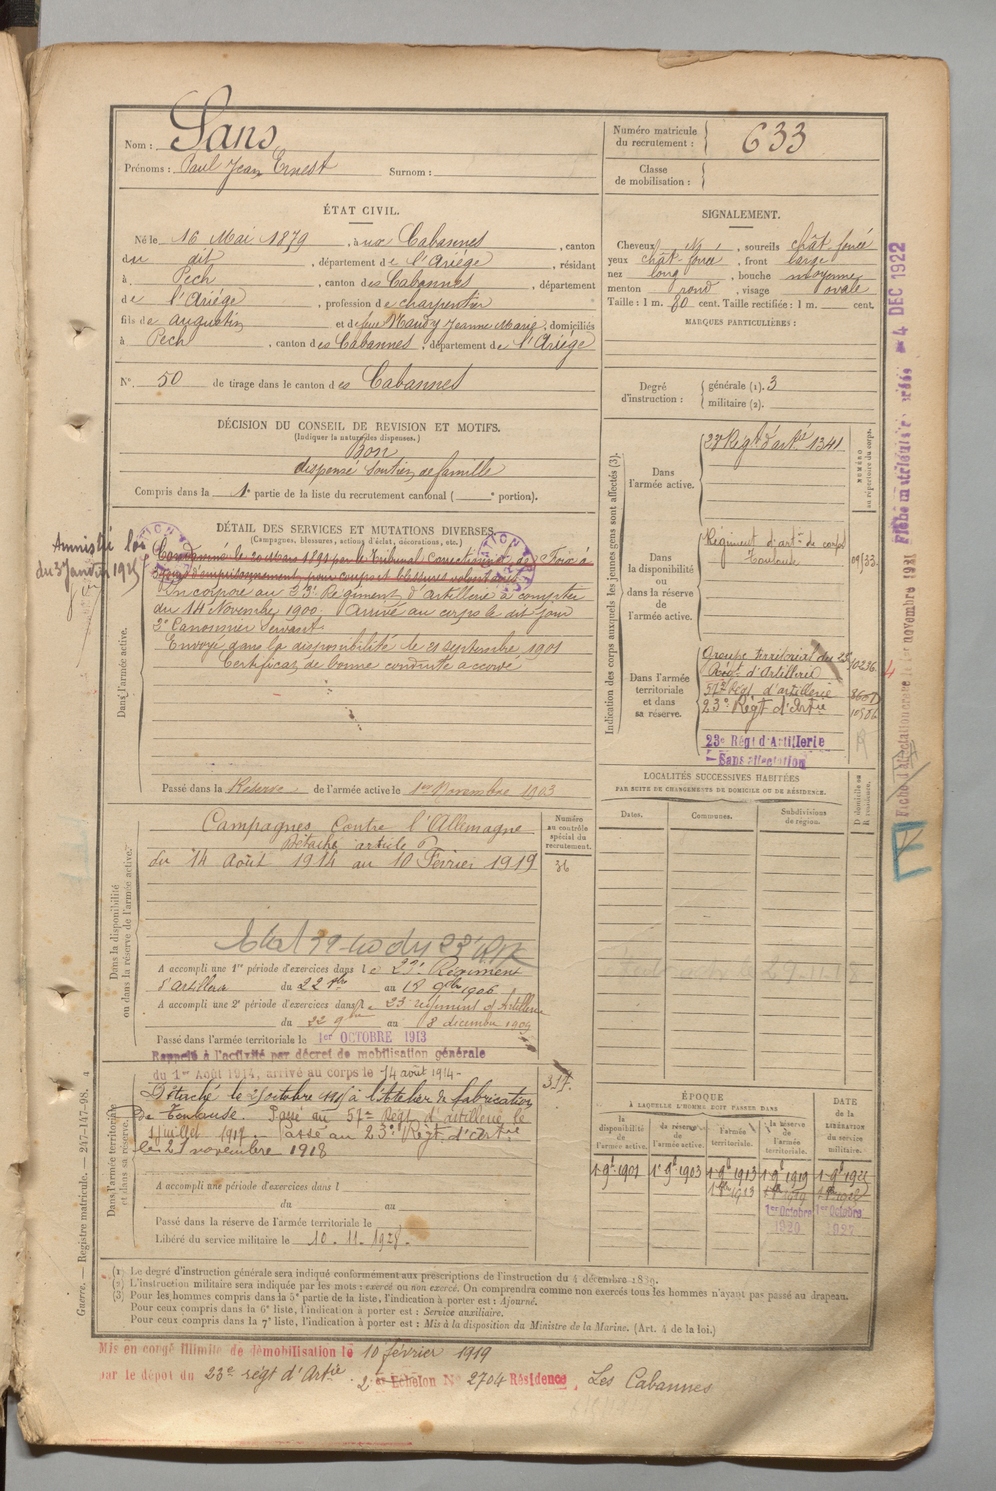 Nom : Sans
Prénoms : Paul Jean Ernest Surnom :
Numéro matricule du recrutement : 633
Classe de mobilisation :
ÉTAT CIVIL.
Né le 16 Mai 1879, à aux Cabannes, canton
du dit, département de l'Ariège, résidant
à Pech, canton des Cabannes, département
de l'Ariège, profession de charpentier
fils de Augustin et de feue Maury Jeanne Marie, domiciliés
à Pech, canton des Cabannes, département de l'Ariège
N° 50 de tirage dans le canton des Cabannes
SIGNALEMENT.
Cheveux, sourcils chât. foncé
yeux chât. foncé, front large
nez long, bouche moyenne
menton rond, visage ovale
Taille : 1 m. 80 cent. Taille rectifiée : 1 m. cent.
MARQUES PARTICULIÈRES :
Degré d'instruction : générale (1). 3
militaire (2).
DÉCISION DU CONSEIL DE REVISION ET MOTIFS.
(Indiquer la nature des dispenses.)
Bon
dispensé soutien de famille
Compris dans la 1e partie de la liste du recrutement cantonal ( e portion).
DÉTAIL DES SERVICES ET MUTATIONS DIVERSES
(Campagnes, blessures, actions d'éclat, décorations, etc.)
Amnistié loi
du 3 Janvier 1925
Condamné le 20 Mars 1899 par le Tribunal Correctionnel de Foix à
d'emprisonnement pour coups et blessures volontaires
Incorporé au 23e Régiment d'artillerie à compter
du 14 Novembre 1900. Arrivé au corps le dit jour
2e Canonnier Servant.
Envoyé dans la disponibilité le 21 septembre 1901
Certificat de bonne conduite accordé
Dans l'armée active.
Passé dans la Réserve de l'armée active le 1er Novembre 1903
Indication des corps auxquels les jeunes gens sont affectés (3).
NUMÉRO au répertoire du corps.
Dans l'armée active.
23e Régt d'artie 1341
Dans la disponibilité ou dans la réserve de l'armée active.
Régiment d'artie de corps
Toulouse
Dans l'armée territoriale et dans sa réserve.
Groupe territorial du 23e 10236
Régt d'Artillerie
57e Régt d'artillerie
23e Régt d'Artie
23e Régt d'Artillerie
Sans affectation
Dans la disponibilité ou dans la réserve de l'armée active.
Campagnes contre l'Allemagne
Détaché article
du 14 Août 1914 au 10 Février 1919
Numéro au contrôle spécial du recrutement.
36
A accompli une 1re période d'exercices dans le 23e Régiment
d'artillerie du 22 au 18 9bre 1906
A accompli une 2e période d'exercices dans le 23e régiment d'Artillerie
du 22 9bre au 8 décembre 1909
Passé dans l'armée territoriale le 1er OCTOBRE 1913
Rappelé à l'activité par décret de mobilisation générale
du 1er Août 1914, arrivé au corps le 14 août 1914.
Dans l'armée territoriale et dans sa réserve.
Détaché le à l'Atelier de fabrication
de Toulouse. Passé au 57e Régt d'artillerie le
1 Juillet 1917. Passé au 23e Régt d'Artie
le 21 novembre 1918
317.
A accompli une période d'exercices dans l
du au
Passé dans la réserve de l'armée territoriale le
Libéré du service militaire le 10.11.1928.
LOCALITÉS SUCCESSIVES HABITÉES
PAR SUITE DE CHANGEMENTS DE DOMICILE OU DE RÉSIDENCE.
Dates. Communes. Subdivisions de région. D domicile ou R résidence.
ÉPOQUE
À LAQUELLE L'HOMME DOIT PASSER DANS
la disponibilité de l'armée active. la réserve de l'armée active. l'armée territoriale. la réserve de l'armée territoriale.
DATE de la LIBÉRATION du service militaire.
1er 9bre 1901 1er 9bre 1903 1er 9bre 1913 1er 9bre 1919 1er 9bre 1922
1er Octobre 1920
1er Octobre
(1) Le degré d'instruction générale sera indiqué conformément aux prescriptions de l'instruction du 4 décembre 1889.
(2) L'instruction militaire sera indiquée par les mots : exercé ou non exercé. On comprendra comme non exercés tous les hommes n'ayant pas passé au drapeau.
(3) Pour les hommes compris dans la 5e partie de la liste, l'indication à porter est : Ajourné.
Pour ceux compris dans la 6e liste, l'indication à porter est : Service auxiliaire.
Pour ceux compris dans la 7e liste, l'indication à porter est : Mis à la disposition du Ministre de la Marine. (Art. 4 de la loi.)
Mis en congé illimité de démobilisation le 10 février 1919
par le dépôt du 23e régt d'Artie. 2 Echelon N° 2704 Résidence, Les Cabannes
Guerre. — Registre matricule. — 247-147-98.
4 DEC 1922